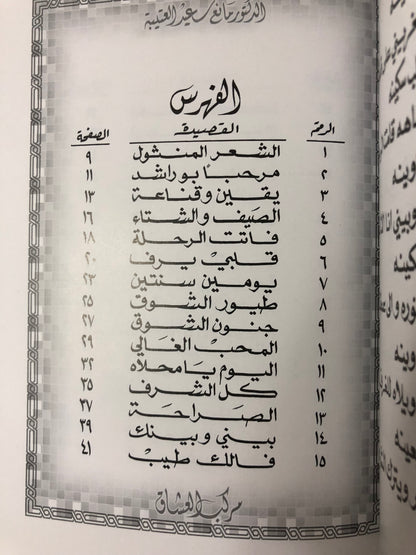 الدكتور مانع سعيد العتيبة
الفهرس
الرقم القصيدة الصفحة
١ الشعر المنثول ٩
٢ مرحباً بوراشد ١١
٣ يقين وقناعة ١٣
٤ الصيف والشتاء ١٦
٥ فاتت الرحلة ١٨
٦ قلبي يرف ٢٠
٧ يومين سنتين ٢٣
٨ طيور الشوق ٢٥
٩ جنون الشوق ٢٧
١٠ المحب الغالي ٢٩
١١ اليوم يا محلاه ٣٢
١٢ كل الشرف ٣٥
١٣ الصراحة ٣٧
١٤ بيني وبينك ٣٩
١٥ فالك طيب ٤١
مركب العشاق